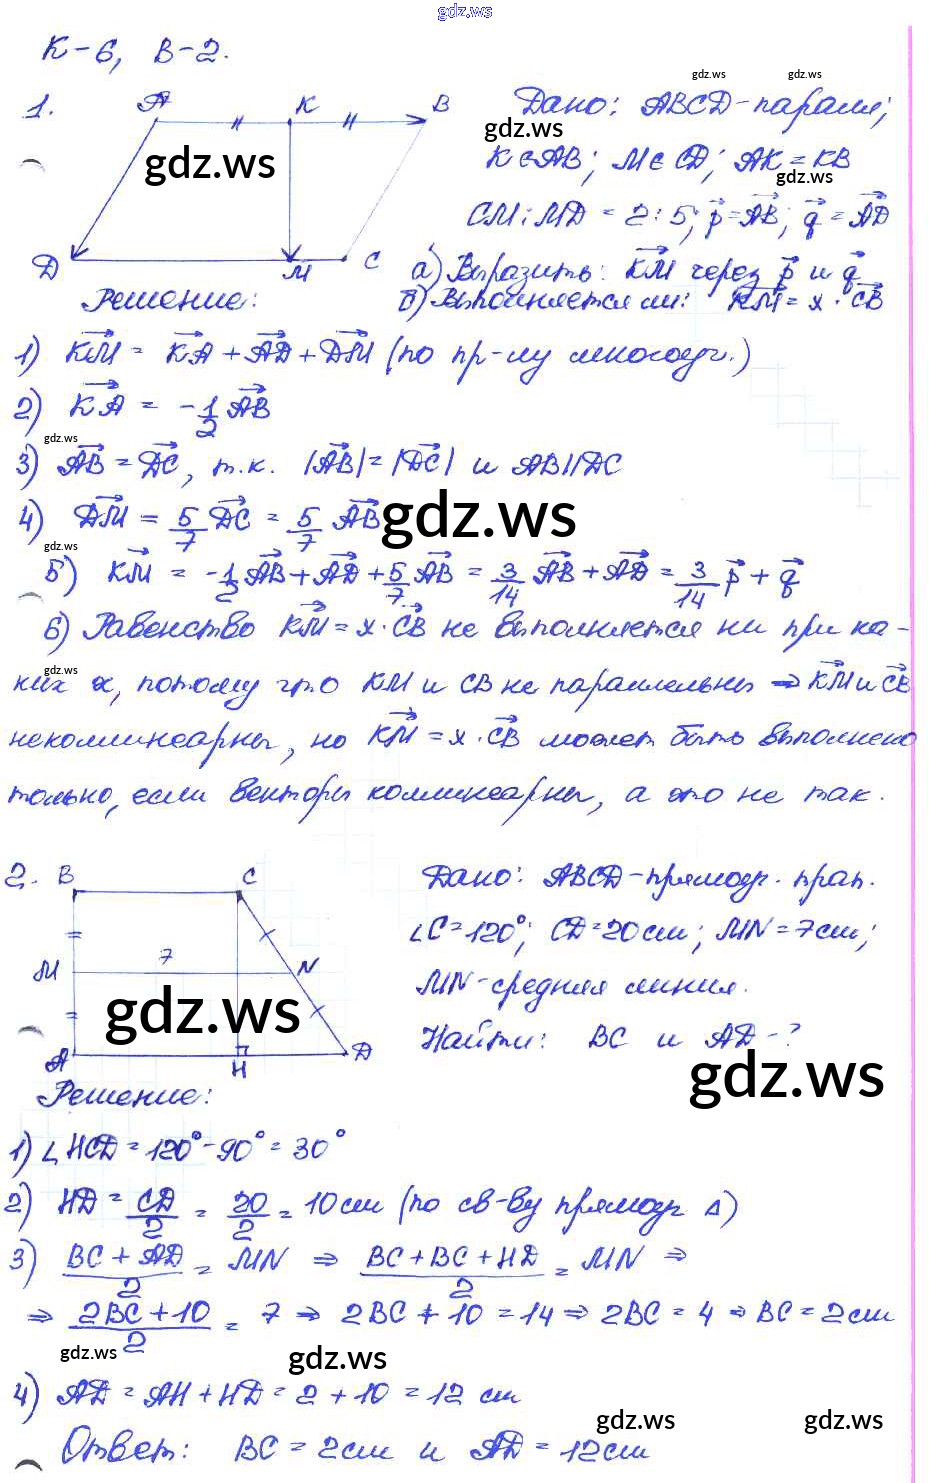 gdz.ws
К-6, В-2.
gdz.ws gdz.ws
1. A K B Дано: ABCD-паралл;
gdz.ws gdz.ws
K∈AB; M∈CD; AK=KB
gdz.ws
CM:MD = 2:5; p⃗=AB⃗; q⃗=AD⃗
D M C а) Выразить: KM⃗ через p⃗ и q⃗
Решение: в) Выполняется ли: KM⃗ = x·CB⃗
1) KM⃗ = KA⃗ + AD⃗ + DM⃗ (по пр-лу многоуг.)
2) KA⃗ = -1/2 AB⃗
gdz.ws
3) AB⃗ = DC⃗, т.к. |AB⃗|=|DC⃗| и AB||DC
4) DM⃗ = 5/7 DC⃗ = 5/7 AB⃗ gdz.ws
gdz.ws
5) KM⃗ = -1/2 AB⃗ + AD⃗ + 5/7 AB⃗ = 3/14 AB⃗ + AD⃗ = 3/14 p⃗ + q⃗
6) Равенство KM⃗ = x·CB⃗ не выполняется ни при ка-
gdz.ws
ких x, потому что KM и CB не параллельны ⇒ KM⃗ и CB⃗
неколлинеарны, но KM⃗ = x·CB⃗ может быть выполнено
только, если векторы коллинеарны, а это не так.
2. B C Дано: ABCD-прямоуг. трап.
∠C=120°; CD=20см; MN=7см;
M 7 N MN-средняя линия.
gdz.ws
A H D Найти: BC и AD-?
gdz.ws
Решение:
1) ∠HCD = 120° - 90° = 30°
2) HD = CD/2 = 20/2 = 10см (по св-ву прямоуг Δ)
3) (BC + AD)/2 = MN ⇒ (BC + BC + HD)/2 = MN ⇒
⇒ (2BC + 10)/2 = 7 ⇒ 2BC + 10 = 14 ⇒ 2BC = 4 ⇒ BC = 2см
gdz.ws gdz.ws
4) AD = AH + HD = 2 + 10 = 12 см
gdz.ws gdz.ws
Ответ: BC = 2см и AD = 12см